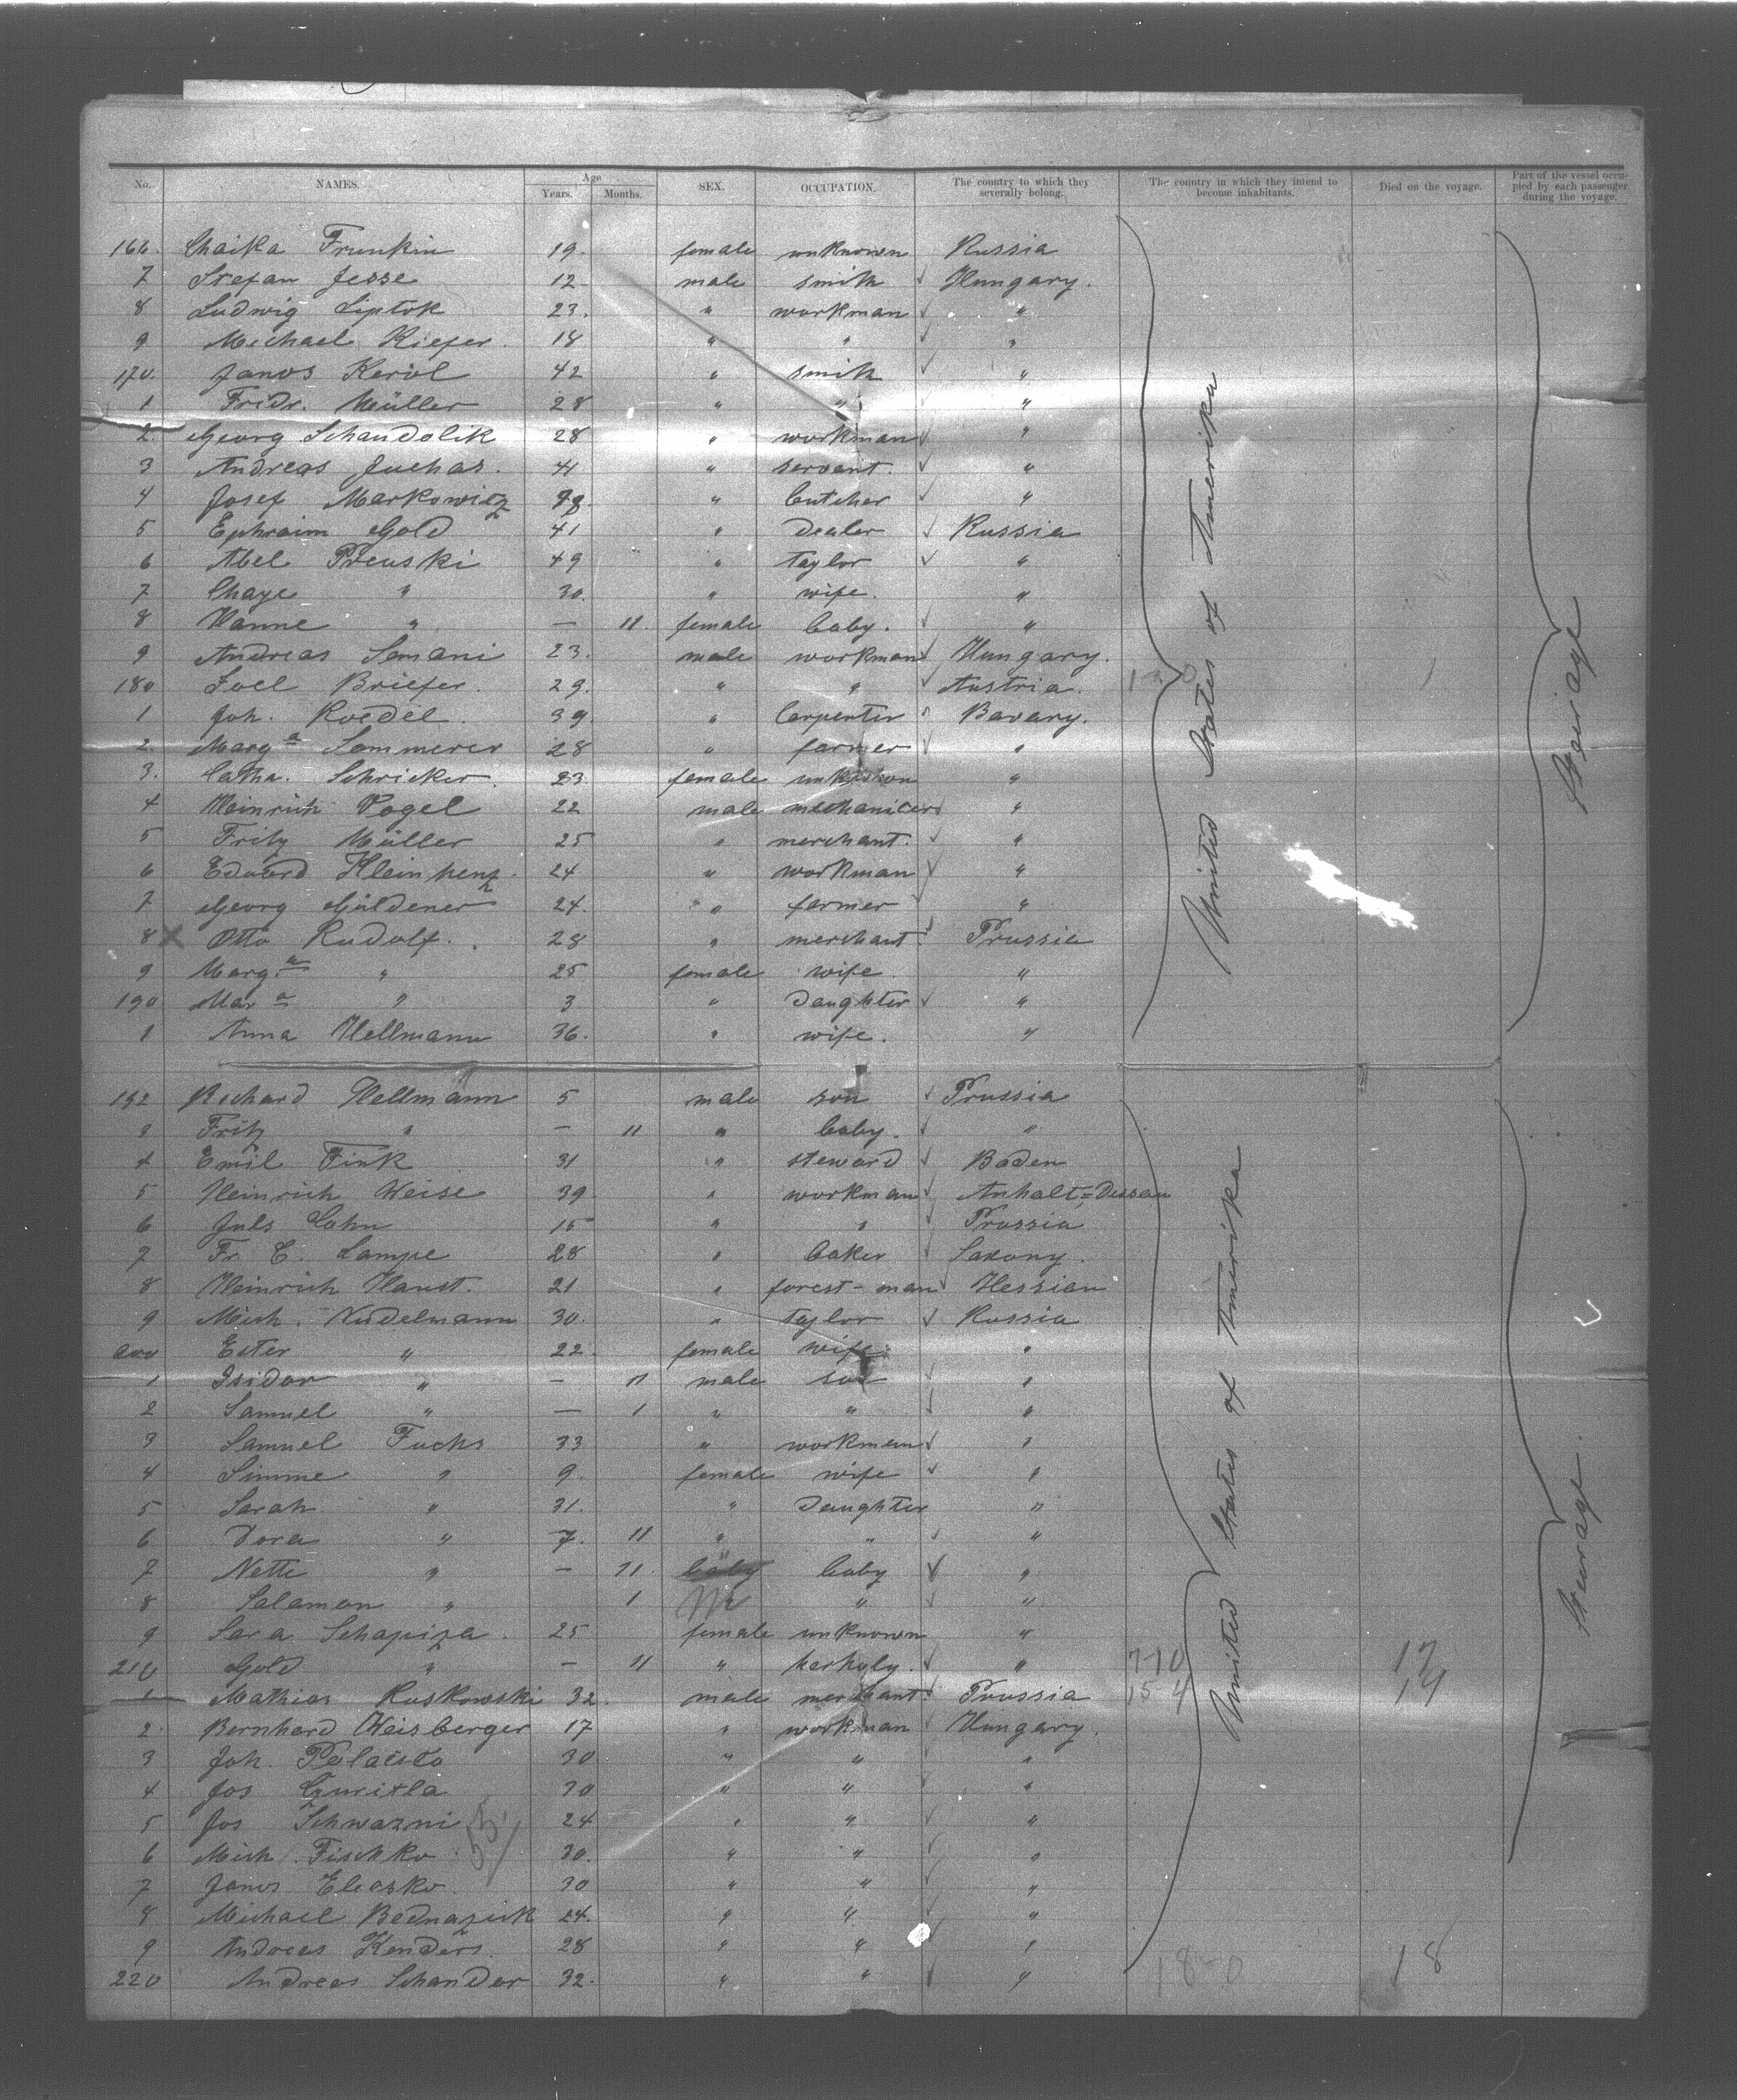 No. NAMES. Age Years. Months. SEX. OCCUPATION. The country to which they severally belong. The country in which they intend to become inhabitants. Died on the voyage. Part of the vessel occupied by each passenger during the voyage.
166. Chaika Frumkin 19. female unknown Russia
7 Stefan Jesse 12 male smith Hungary.
8 Ludwig Liptok 23. " workman "
9 Michael Kiefer. 18 " " "
170. Janos Keröl 42 " smith "
1 Fridr. Müller 28 " " "
2. Georg Schandolik 28 " workman "
3 Andreas Juchas. 41 " servant. "
4 Josef Markowicz " butcher "
5 Ephraim Gold 41 " Dealer Russia
6 Abel Preuski 49 " taylor "
7 Chaye " 30. " wife. "
8 Hanne " — 11. female baby. "
9 Andreas Semani 23. male workman Hungary.
180 Joel Briefer. 29. " " Austria.
1 Joh. Roedel. 39. " Carpenter Bavary.
2. Marga Sommerer 28 " farmer "
3. Catha. Schricker. 23 female unknown "
4 Heinrich Vogel 22 male mechaniker "
5 Fritz Müller 25 " merchant. "
6 Eduard Kleinhenz. 24 " workman "
7 Georg Güldener 24. " farmer "
8 X Otto Rudolf. 28 " merchant. Prussia
9 Marga " 25 female wife. "
190 Mara " 3 " Daughter "
1 Anna Hellmann 36. " wife. "
United States of Amerika
Steirage
192 Richard Hellmann 5 male son Prussia
3 Fritz " — 11 " baby. "
4 Emil Fink 31 " steward Baden
5 Heinrich Weise 39 " workman Anhalt=Dessau
6 Juls Cohn 15 " " Prussia
7 Fr. C. Lampe 28 " baker Saxony.
8 Heinrich Hanst. 21 " forest-man Hessian
9 Mich. Nudelmann 30. " taylor Russia
200 Ester " 22. female wife. "
1 Isidor " — 11 male son "
2 Samuel " — 1 " " "
3 Samuel Fuchs 33 " workman "
4 Simme " 9. female wife "
5 Sarah " 31. " Daughter "
6 Dora " 7. 11 " " "
7 Nette " — 11. baby baby "
8 Salamon " 1 m " "
9 Sara Schapiza. 25 female unknown "
210 Gold " — 11 " "
1 Mathias Ruskowski 32. male merchant Prussia
2 Bernhard Weisberger 17 " workman Hungary.
3 Joh. Polacsto 30 " " "
4 Jos 30 " " "
5 Jos Schwazni 24 " " "
6 Mich. Fischko 30. " " "
7 Janos Eleasko. 30 " " "
8 Michael Bednazuk 24. " " "
9 Andreas Kenders. 28 " " "
220 Andreas Schander 32. " " "
United States of Amerika
Steurage.